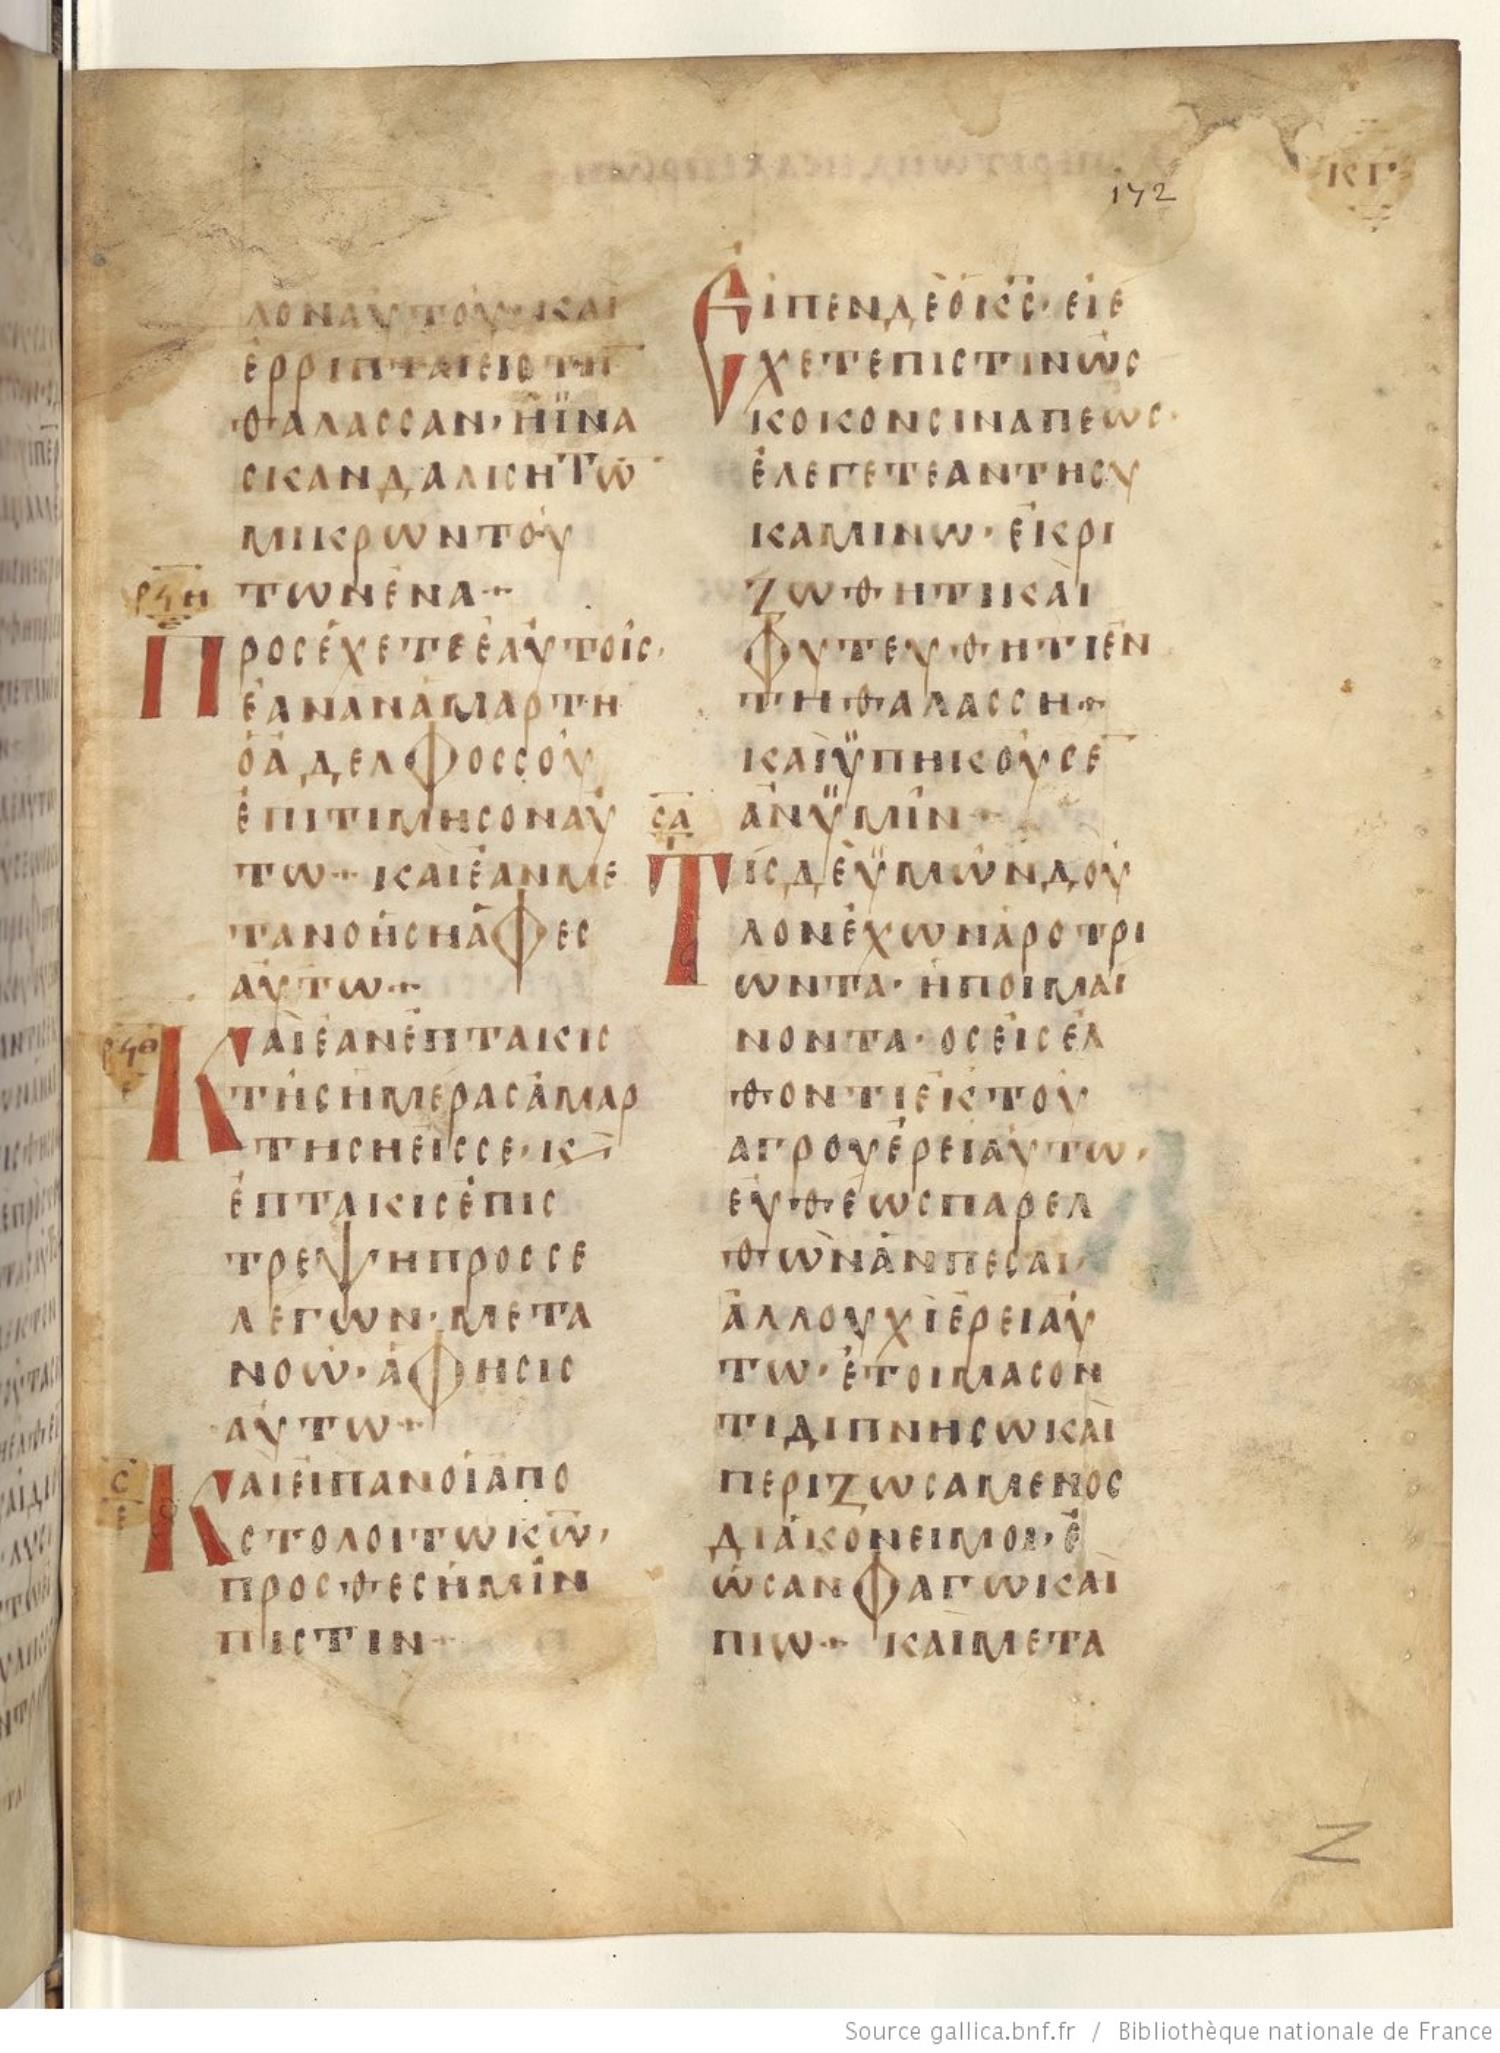 ΚΓ
172
ΛΟΝΑΥΤΟΥ· ΚΑΙ
ΕΡΡΙΠΤΑΙΕΙΣΤΗ̅
ΘΑΛΑΣΣΑΝ· ΗΪΝΑ
ΣΚΑΝΔΑΛΙΣΗΤΩ̅
ΜΙΚΡΩΝΤΟΥ
ΡϞΗ ΤΩΝΕΝΑ·
ΠΡΟΣΕΧΕΤΕΕΑΥΤΟΙΣ·
ΕΑΝΑΝΑΜΑΡΤΗ
ΟΑΔΕΛΦΟΣΣΟΥ
ΕΠΙΤΙΜΗΣΟΝΑΥ
ΤΩ· ΚΑΙΕΑΝΜΕ
ΤΑΝΟΗΣΗΑΦΕΣ
ΑΥΤΩ·
ΡϞΘ ΚΑΙΕΑΝΕΠΤΑΚΙΣ
ΤΗΣΗΜΕΡΑΣΑΜΑΡ
ΤΗΣΗΕΙΣΣΕ· Κ̅
ΕΠΤΑΚΙΣΕΠΙΣ
ΤΡΕΨΗΠΡΟΣΣΕ
ΛΕΓΩΝ· ΜΕΤΑ
ΝΟΩ· ΑΦΗΣΙΣ
ΑΥΤΩ·
Σ ΚΑΙΕΙΠΑΝΟΙΑΠΟ
ΣΤΟΛΟΙΤΩΚΩ̅·
ΠΡΟΣΘΕΣΗΜΙΝ
ΠΙΣΤΙΝ·
ΕΙΠΕΝΔΕΟΚ̅Σ̅· ΕΙΕ
ΧΕΤΕΠΙΣΤΙΝΩΣ
ΚΟΚΟΝΣΙΝΑΠΕΩΣ·
ΕΛΕΓΕΤΕΑΝΤΗΣΥ
ΚΑΜΙΝΩ· ΕΚΡΙ
ΖΩΘΗΤΙΚΑΙ
ΦΥΤΕΥΘΗΤΙΕΝ
ΤΗΘΑΛΑΣΣΗ·
ΚΑΙΫΠΗΚΟΥΣΕ̅
ΣΑ ΑΝΫΜΙΝ·
ΤΙΣΔΕΫΜΩΝΔΟΥ
ΛΟΝΕΧΩΝΑΡΟΤΡΙ
ΩΝΤΑ· ΗΠΟΙΜΑΙ
ΝΟΝΤΑ· ΟΣΕΙΣΕΛ
ΘΟΝΤΙΕΚΤΟΥ
ΑΓΡΟΥΕΡΕΙΑΥΤΩ·
ΕΥΘΕΩΣΠΑΡΕΛ
ΘΩΝΑΝΠΕΣΑΙ
ΑΛΛΟΥΧΙΕΡΕΙΑΥ
ΤΩ· ΕΤΟΙΜΑΣΟΝ
ΤΙΔΙΠΝΗΣΩΚΑΙ
ΠΕΡΙΖΩΣΑΜΕΝΟΣ
ΔΙΑΚΟΝΕΙΜΟΙ· Ε
ΩΣΑΝΦΑΓΩΚΑΙ
ΠΙΩ· ΚΑΙΜΕΤΑ
Z
Source gallica.bnf.fr / Bibliothèque nationale de France